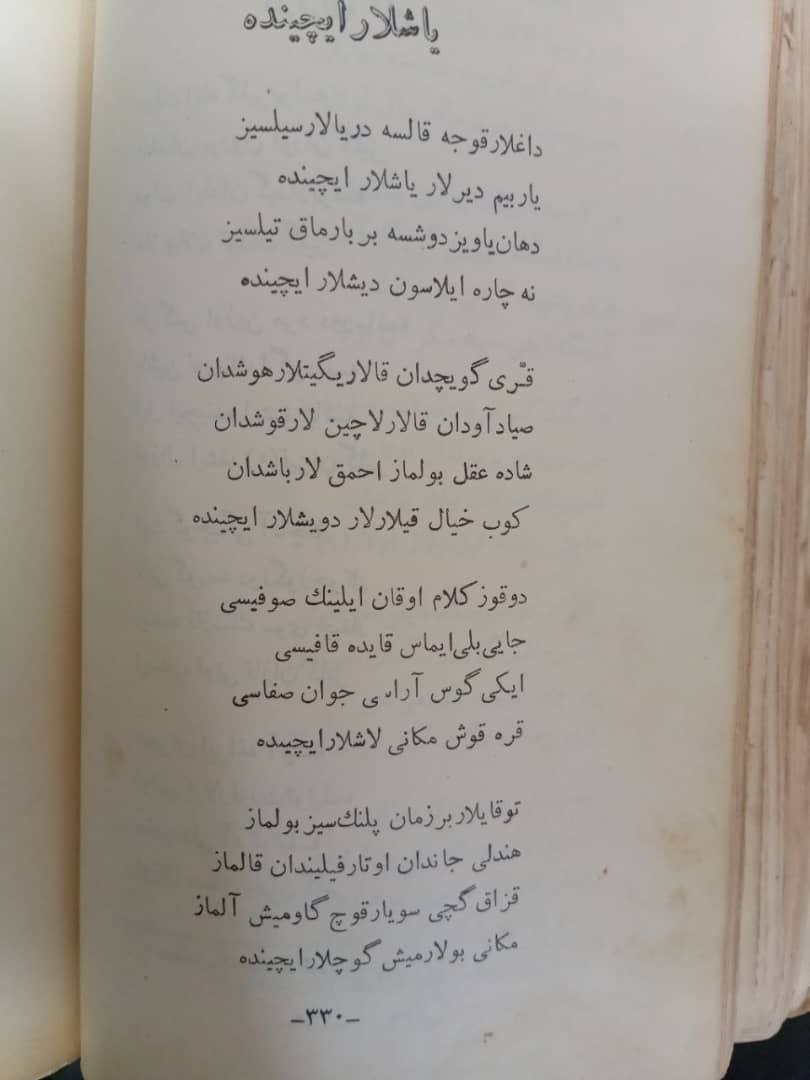 یاشلار ایچینده
داغلار قوجه قالسه دریالار سیلسیز
یاربیم دیرلار یاشلار ایچینده
دهان یاویز دوشسه بر بارماق تیلسیز
نه چاره ایلاسون دیشلار ایچینده
قرّی گویچدان قالار یگیتلار هوشدان
صیاد آودان قالار لاچین لار قوشدان
شاده عقل بولماز احمق لار باشدان
کوب خیال قیلارلار دویشلار ایچینده
دوقوز کلام اوقان ایلینك صوفیسی
جایی بلی ایماس قایده قافیسی
ایکی گوس آراسی جوان صفاسی
قره قوش مکانی لاشلار ایچینده
توقایلار بر زمان پلنك سیز بولماز
هندلی جاندان اوتار فیلیندان قالماز
قزاق گچی سویار قوچ گاومیش آلماز
مکانی بولارمیش گوچلار ایچینده
-۳۳۰-